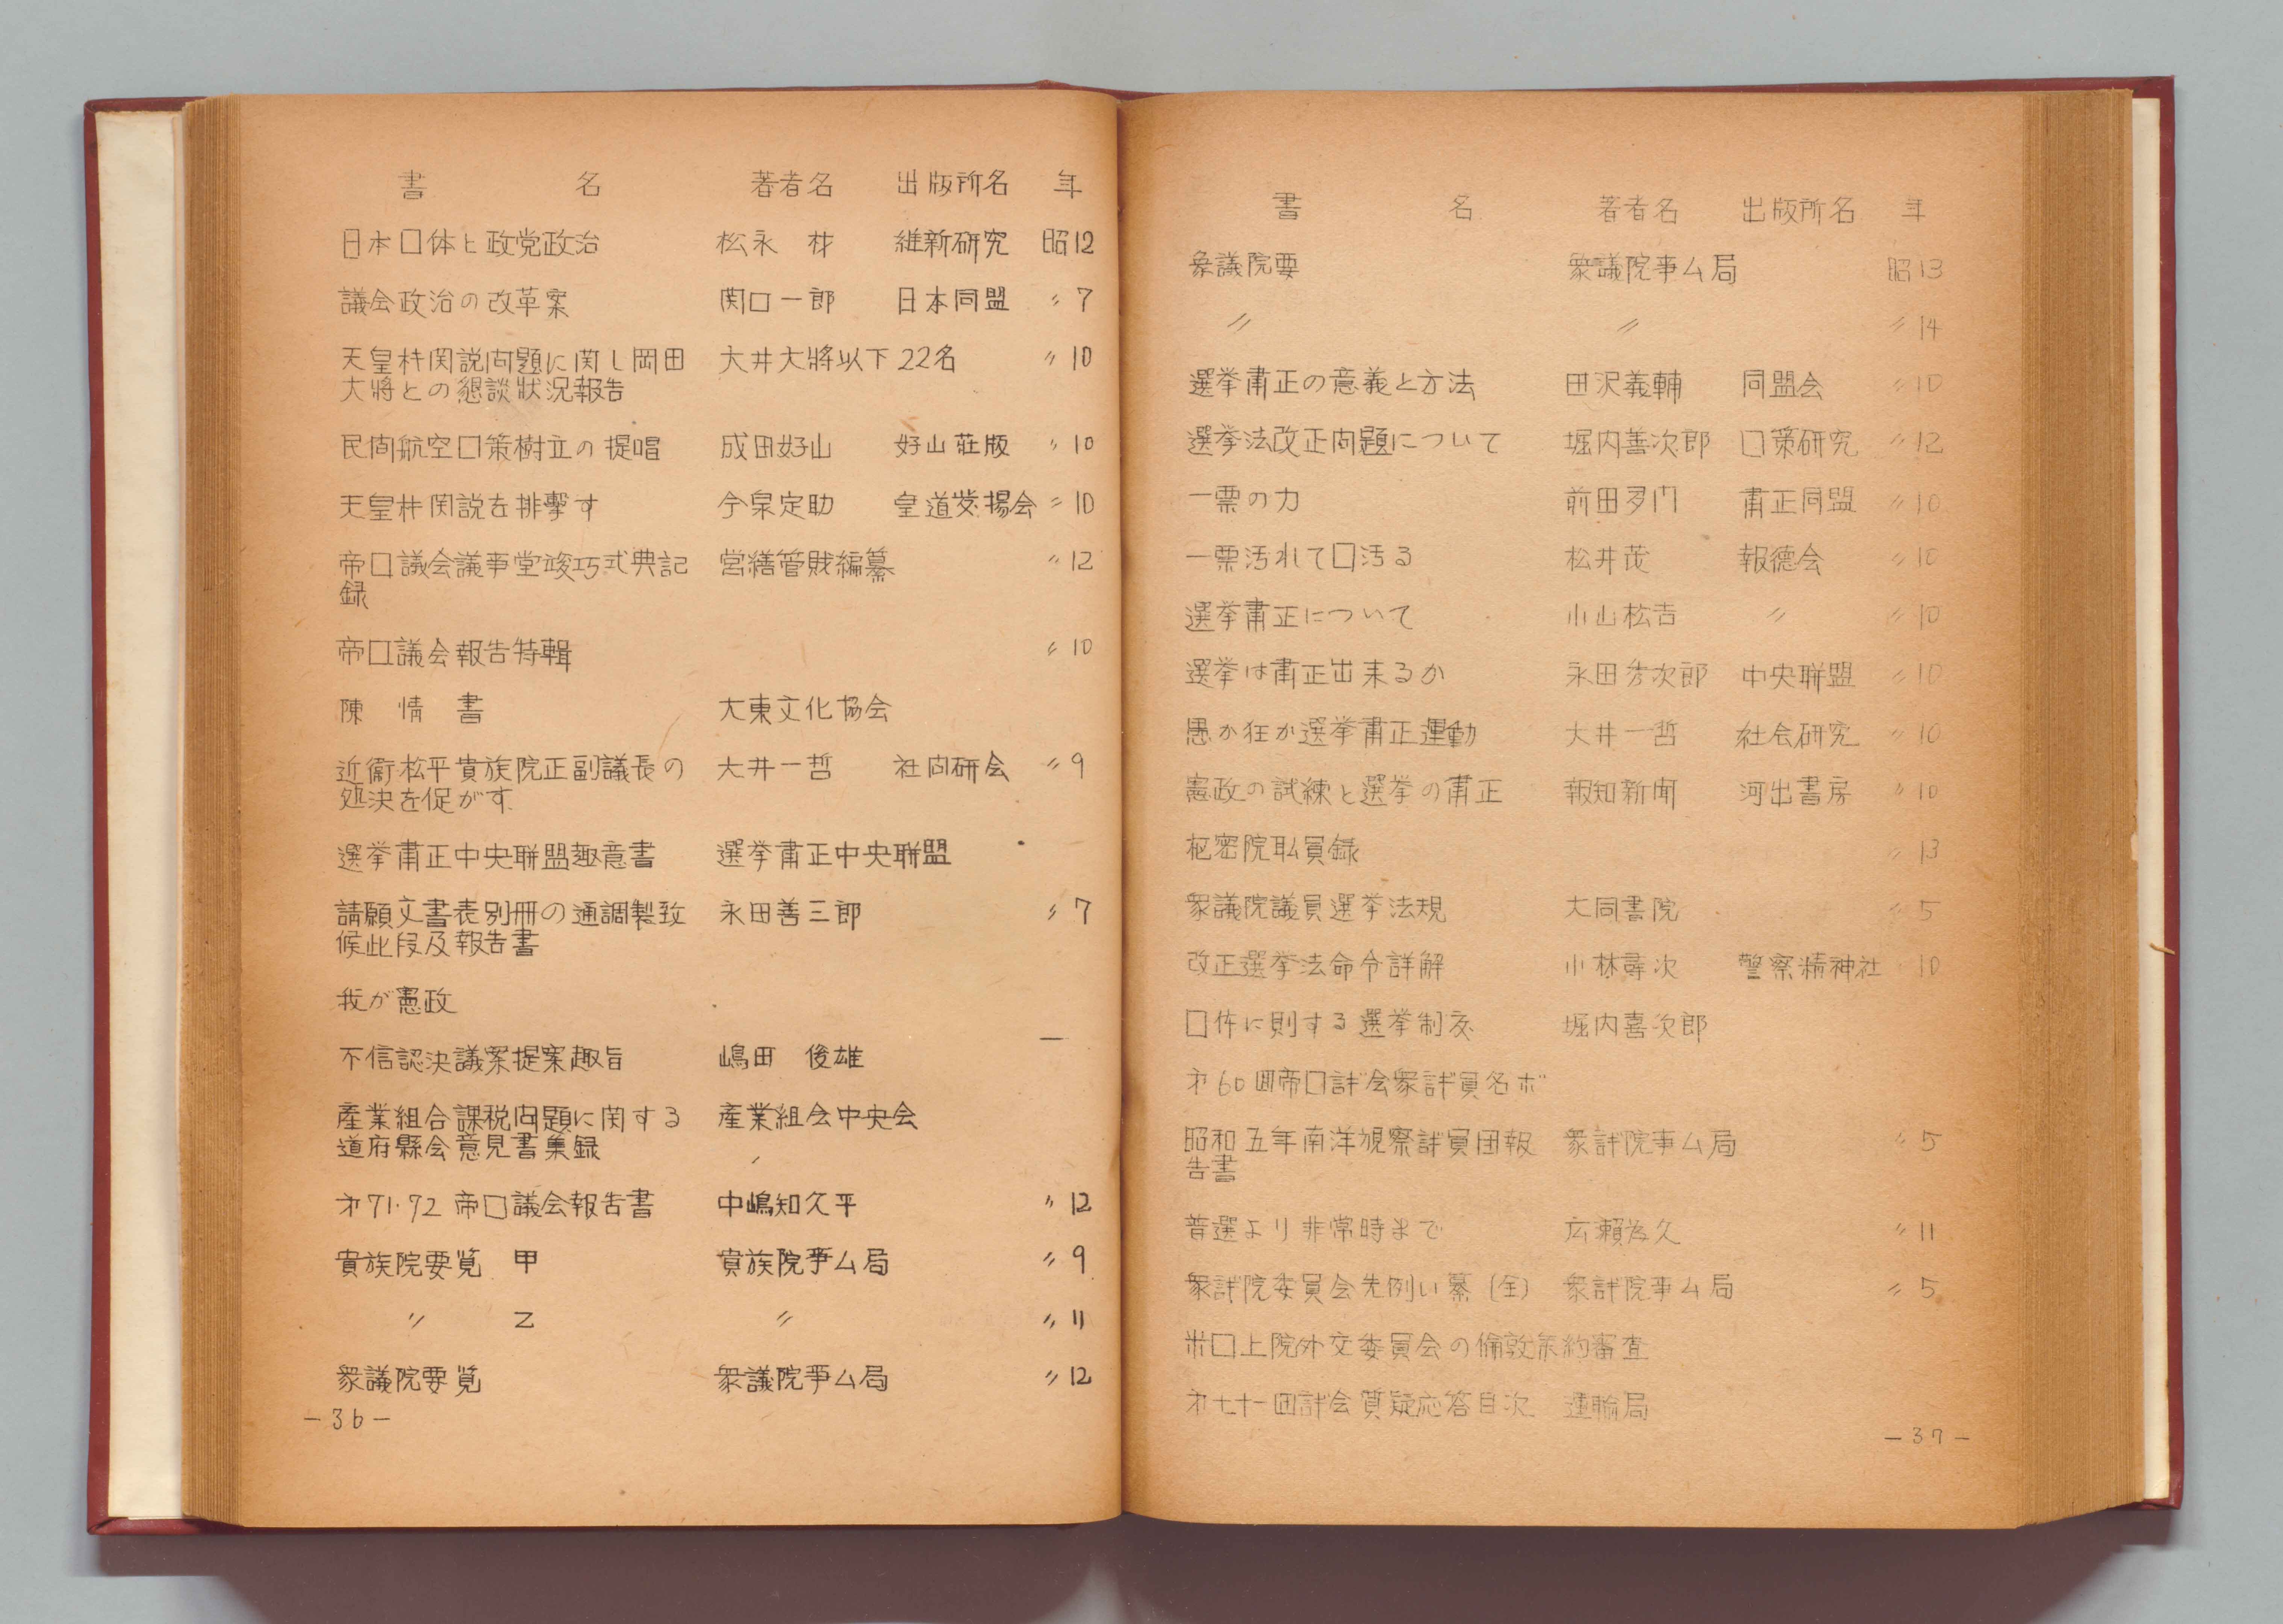 書 名 著者名 出版所名 年
日本口体と政党政治 松永 材 維新研究 昭12
議会政治の改革案 関口一郎 日本同盟 〃 7
天皇机関説問題に関し岡田 大井大將以下22名 〃 10
大將との懇談状況報告
民間航空口策樹立の提唱 成田好山 好山荘版 〃 10
天皇机関説を排撃す 今泉定助 皇道発揚会 〃 10
帝口議会議事堂竣巧式典記 営繕管財編纂 〃 12
録
帝口議会報告特輯 〃 10
陳 情 書 大東文化協会
近衞松平貴族院正副議長の 大井一哲 社问研会 〃 9
処決を促がす
選挙粛正中央聯盟趣意書 選挙粛正中央聯盟
請願文書表別冊の通調製致 永田善三郎 〃 7
候此段及報告書
我が憲政
不信認決議案提案趣旨 嶋田 俊雄
産業組合課税问題に関する 産業組合中央会
道府縣会意見書集録
才71.72 帝口議会報告書 中嶋知久平 〃 12
貴族院要覧 甲 貴族院事ム局 〃 9
〃 乙 〃 〃 11
衆議院要覧 衆議院事ム局 〃 12
-36-
書 名 著者名 出版所名 年
衆議院要 衆議院事ム局 昭13
〃 〃 〃 14
選挙粛正の意義と方法 田沢義輔 同盟会 〃 10
選挙法改正问題について 堀内善次郎 口策研究 〃 12
一票の力 前田多门 粛正同盟 〃 10
一票汚れて口汚る 松井茂 報徳会 〃 10
選挙粛正について 小山松吉 〃 〃 10
選挙は粛正出来るか 永田秀次郎 中央聯盟 〃 10
愚か狂か選挙粛正運動 大井一哲 社会研究 〃 10
憲政の試練と選挙の粛正 報知新聞 河出書房 〃 10
枢密院耺員録 〃 13
衆議院議員選挙法規 大同書院 〃 5
改正選挙法命令詳解 小林尋次 警察精神社 〃 10
口体に則する選挙制度 堀内喜次郎
才60回帝口議会衆議員名ボ
昭和五年南洋視察議員団報 衆議院事ム局 〃 5
告書
普選より非常時まで 広瀬為久 〃 11
衆議院委員会先例い纂 (全) 衆議院事ム局 〃 5
米口上院外交委員会の倫敦条約審査
才七十一回議会質疑応答目次 運輸局
-37-